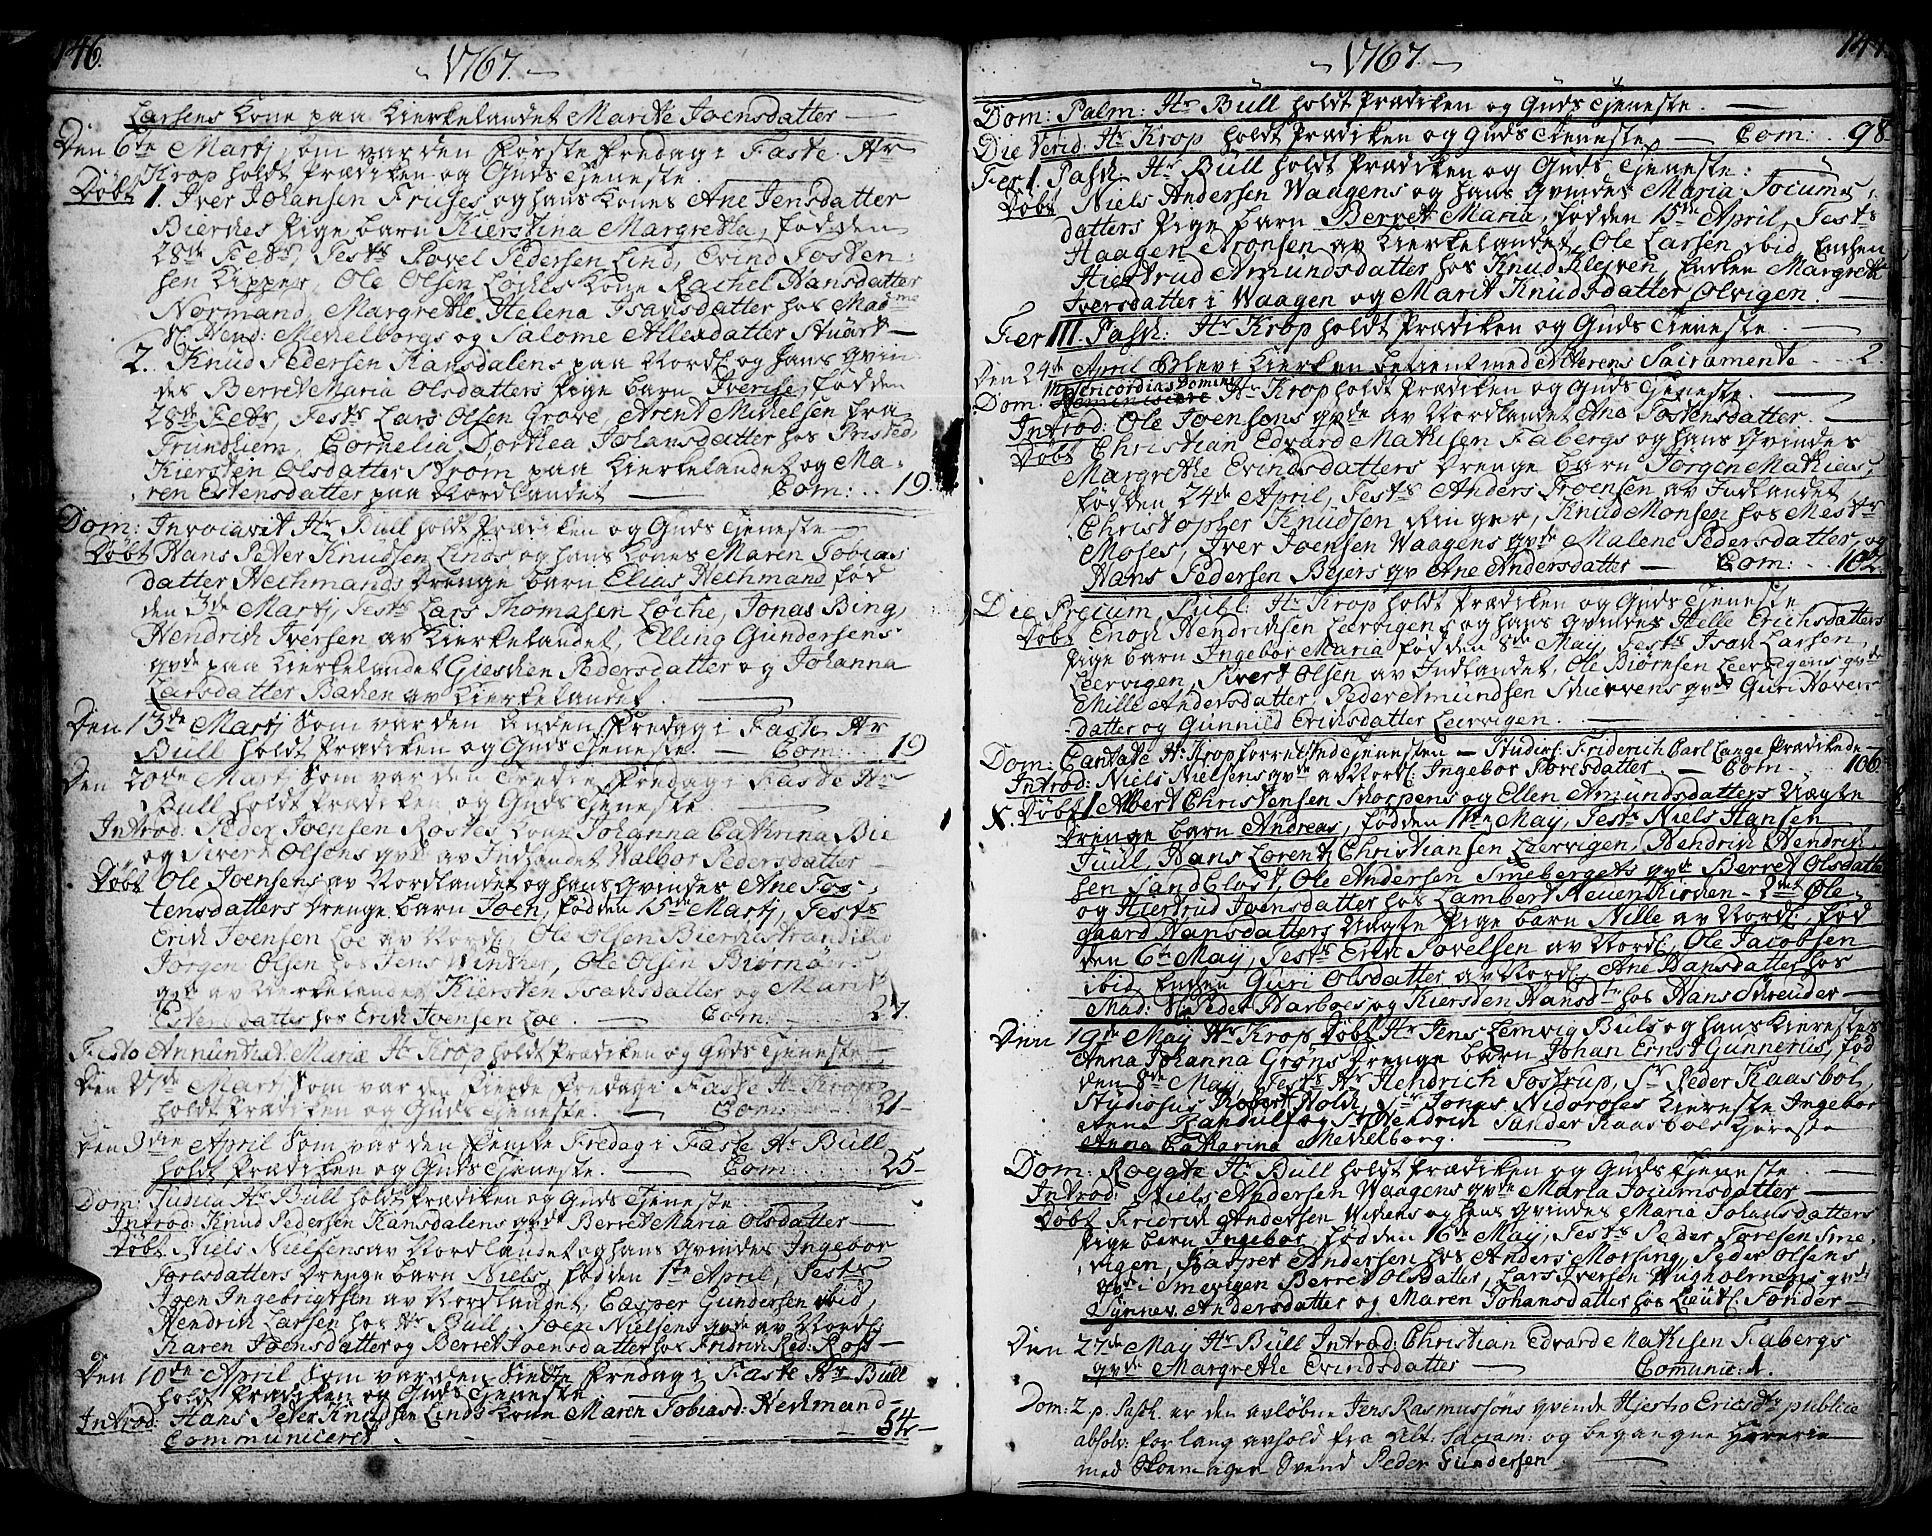 146.
~ 1767. ~
Larsens Kone paa Kierkelandet Marite Joensdatter
Den 6te Martj, som var den første Fredag i Faste Hr
Krop holdt Prædiken og Guds Tjeneste
Døbt 1. Iver Johansen Friises og hans Kones Ane Jensdatter
Bierches Pige barn Kierstina Margretha, fød den
28de Febr, Tests Povel Pedersen Lind, Evind Tosten:
sen Kipper, Ole Olsen Løches Kone Rachel Hansdatter
Normand, Margrethe Helena Isaksdatter hos Madme
Sl. Hend: Mechelborgs og Salome Allexdatter Stuart
2. Knud Pedersen Kansdalens paa Nordl og hans qvin
des Berret Maria Olsdatters Pige barn Iverise, fød den
28de Febr, Tests Lars Olsen Grove, Arent Michelsen fra
Trundhiem, Cornelia Dorthea Johansdatter hos Pristed,
Kiersten Olsdatter Strom paa Kierkelandet og Ma
ren Estensdatter paa Nordlandet Com: .. 19.
Dom: Invocavit Hr Bull holdt Prædiken og Guds Tjeneste
Døbt Hans Peter Knudsen Linds og hans Kones Maren Tobias
datter Hechmands Drenge barn Elias Hechmand fød
den 3de Martj, Tests Lars Thomasen Løche, Jonas Bing,
Hendrich Iversen av Kierkelandet, Elling Gundersens
qvde paa Kierkelandet Gieschen Pedersdatter og Johanna
Larsdatter Bachen av Kierkelandet.
Den 13de Martj som var den Anden Fredag i Faste Hr
Bull holdt Prædiken og Guds Tjeneste. Com: 19
Den 20de Martj som var den Tredie Fredag i Faste Hr
Bull holdt Prædiken og Guds Tjeneste
Introd: Peder Joensen Rostes Kone Johanna Cathrina Bie
og Sivert Olsens qvde av Indlandet Walbor Pedersdatter
Døbt Ole Joensens av Nordlandet og hans Qvindes Ane Tos
tensdatters Drenge barn Joen, fød den 15de Martj, Tests
Erich Joensen Loe av Nordl, Ole Olsen Bierchestrand
Jørgen Olsen hos Jens Winther, Ole Olsen Biørnøer
qvde av Kierkelandet Kiersten Isaksdatter og Marit
Estensdatter hos Erich Joensen Loe Com: 27.
Festo Annuntiat: Mariæ Hr Krop holdt Prædiken og Guds Tjeneste
Den 27de Martj som var den Fierde Fredag i Faste Hr Krop
holdt Prædiken og Guds Tjeneste. Com: 21
Den 3die April Som var den Femte Fredag i Faste Hr Bull
holdt Prædiken og Guds Tjeneste. Com: 25
Dom: Judica Hr Bull holdt Prædiken og Guds Tjeneste
Introd: Knud Pedersen Kansdalens qvde Berret Maria Olsdatter
Døbt Niels Nielsens av Nordlandet og hans Qvindes Ingebor
Toresdatters Drenge barn Niels, fød den 1ste April, Tests
Joen Ingebrigtsen av Nordlandet, Casper Gundersen ibid,
Hendrich Larsen hos Hr Bull, Joen Nielsens qvde av Nordl
Karen Joensdatter og Berret Joensdatter hos Fridrich Red: Rost
Den 10de April Som var den Siette Fredag i Faste Hr Bull
holdt Prædiken og Guds Tjeneste
Introd: Hans Peter Knudsen Linds Kone Maren Tobiasd: Hechmand
Communiceret 54
147.
~ 1767. ~
Dom: Palm: Hr Bull holdt Prædiken og Guds Tjeneste.
Die Virid: Hr Krop holdt Prædiken og Guds Tjeneste Com: .. 98
Fer 1. Pasch: Hr Bull holdt Prædiken og Guds Tjeneste:
Døbt Niels Andersen Waagens og hans Qvindes Maria Jocums
datters Pige barn Berret Maria, fød den 15de April, Tests
Haagen Aronsen av Kierkelandet, Ole Larsen ibid, Enchen
Hiertrud Amundsdatter hos Knud Kleven, Enchen Margrethe
Iversdatter i Waagen og Marit Knudsdatter Olvigen.
Fer III. Pasch: Hr Krop holdt Prædiken og Guds Tjeneste
Den 24de April Blev i Kierken betient med Alterens Sacramente .. 2
Misericordias Domini
Dom. Hr Krop holdt Prædiken og Guds Tjeneste
Introd: Ole Joensens qvde av Nordlandet Ane Tostensdatter
Døbt Christian Edvard Mathisen Fabergs og hans Qvindes
Margrethe Evindsdatters Drenge barn Jørgen Mathias,
fød den 24de April, Tests Anders Troensen av Indlandet
Christopher Knudsen Ringer, Knud Monsen hos Mestr
Moses, Iver Joensen Waagens qvde Malene Pedersdatter, og
Hans Pedersen Bejers qv Ane Andersdatter Com: . 102.
Die Precum Publ: Hr Krop holdt Prædiken og Guds Tjeneste
Døbt Enoch Hendrichsen Leervigens og hans Qvindes Helle Erichsdatters
Pige barn Ingebor Maria fød den 8de May, Tests Isach Larsen
Leervigen, Sivert Olsen av Indlandet, Ole Biørnsen Leervigens qvde
Mille Andersdatter, Peder Amundsen Schiervens qvde Guri Hovers
datter og Gunnild Erichsdatter Leervigen.
Dom: Cantate Hr Krop forrettede Tjenesten - Studios: Friderich Carl Lange Prædikede
Introd: Niels Nielsens qvde av Nordl: Ingebor Toresdatter. Com .. 106
X. Døbt 1 Albert Christensen Skorpens og Ellen Amundsdatters Uægte
Drenge barn Andreas, fød den 11te May, Tests Niels Hansen
Juul, Hans Lorentz Christiansen Leervigen, Hendrich Hendrich
sen Sandblost, Ole Andersen Smebergets qvde Berret Olsdatter
og Hiertrud Joensdatter hos Lambert Neuenkirchen - 2det Ole
gaard Hansdatters Uægte Pige barn Nille av Nordl:, fød
den 6te May, Tests Erich Povelsen av Nordl, Ole Jacobsen
ibid, Enchen Guri Olsdatter av Nordl, Ane Hansdatter hos
Mad: Sl. Peder Harboes og Kiersten Hansdtr hos Hans Schreuder
Den 19de May Hr Krop Døbt Hr Jens Lemvig Buls og hans Kierestes
Anna Johanna Grøns Drenge barn Johan Ernst Gunnerus, fød
den 8de May, Tests Hr Hendrich Tostrup, Sr Peder Kaasbøl,
Studiosus Robert Nolch, Sr Jonas Nidorøses Kiereste Ingebor
Anna Randulf og Sr Hendrich Sander Kaasbøls Kiereste
Anna Catharina Mechelborg.
Dom: Rogate Hr Bull holdt Prædiken og Guds Tjeneste
Introd: Niels Andersen Waagens qvde Maria Jocumsdatter
Døbt Fridrich Andersen Vichens og hans qvindes Maria Johansdatters
Pige barn Ingebor, fød den 16de May, Tests Peder Toresen Sme
vigen, Kasper Andersen hos Anders Morsing, Peder Olsens
qvde i Smevigen Berret Olsdatter, Lars Iversen Wugholmens qvde
Synnev Andersdatter og Maren Johansdatter hos Lieut: Tonder
Den 27de May Hr Bull Introd: Christian Edvard Mathisen Fabergs
qvde Margrethe Evindsdatter Comunic: 1.
Dom: 2. p. Pasch. er den avløbne Jens Rasmussøns qvinde Hjestro Ericsdtr publice
absolv: for lang avhold fra Alt. Sacram: og begangne Horerie
med Skoemager Svend Peder Gundersen